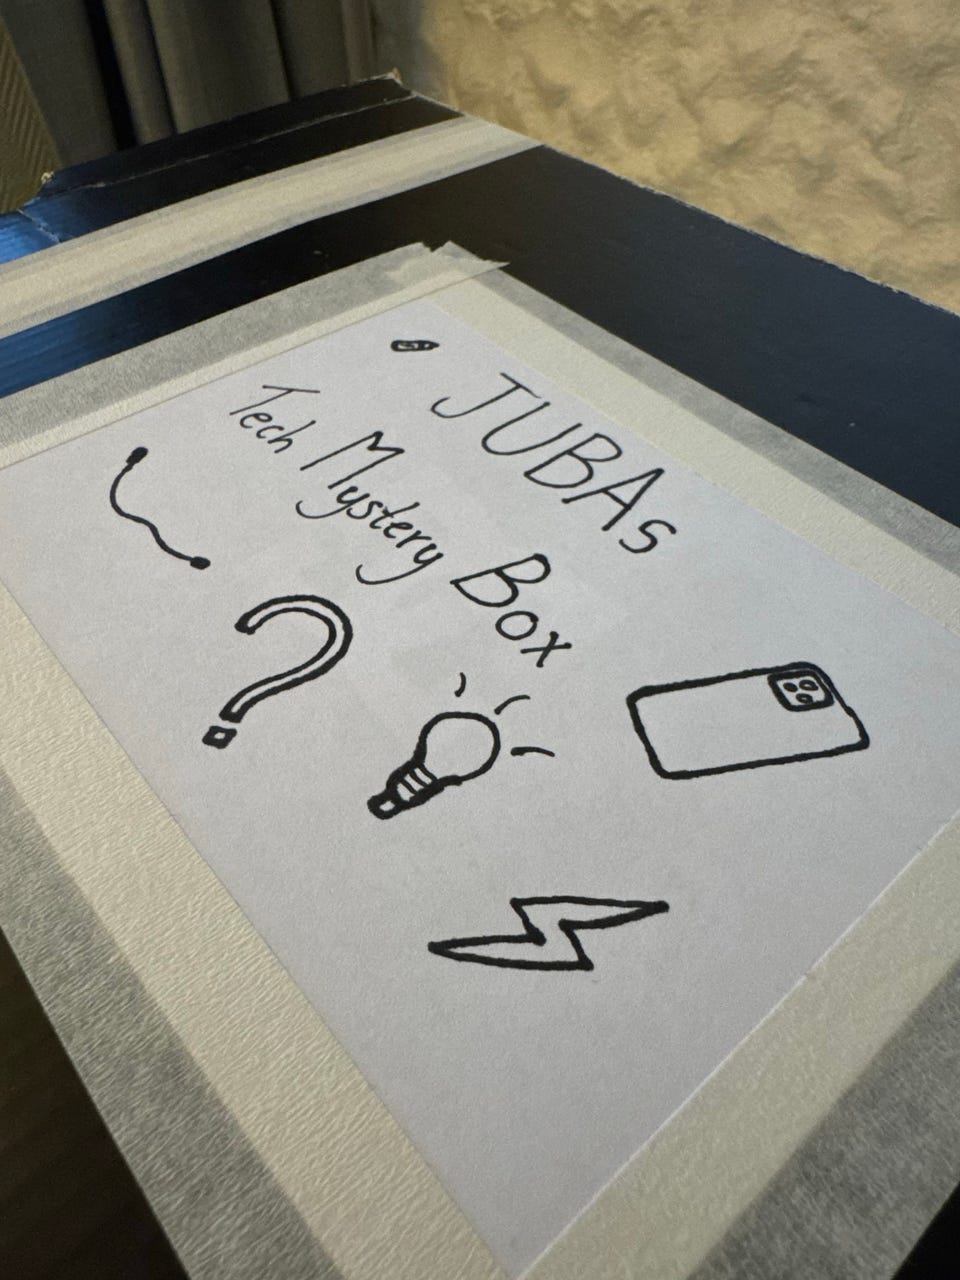 JUBAs
Tech Mystery Box
?